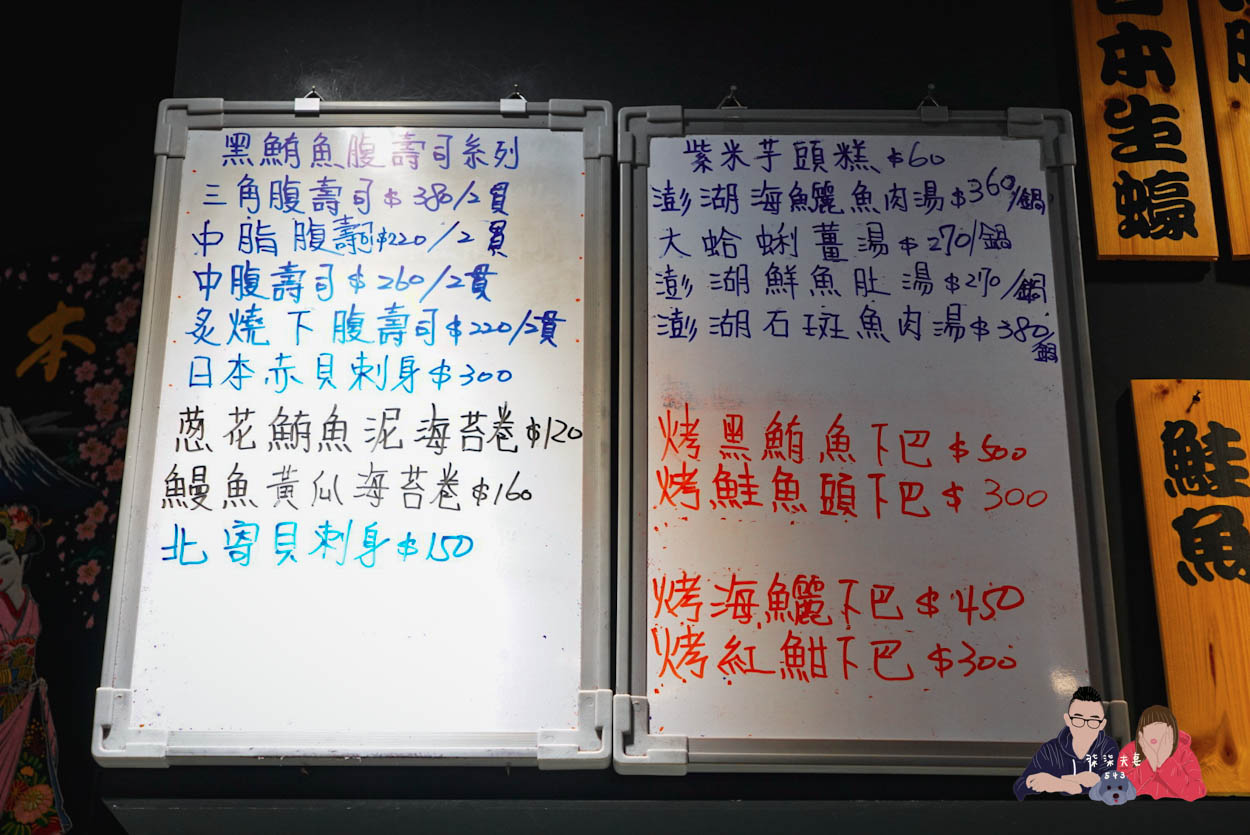 黑鮪魚腹壽司系列
三角腹壽司$380/2貫
中脂腹壽司$220/2貫
中腹壽司$260/2貫
炙燒下腹壽司$220/2貫
日本赤貝刺身$300
蔥花鮪魚泥海苔卷$120
鰻魚黃瓜海苔卷$160
北寄貝刺身$150
紫米芋頭糕$60
澎湖海鱺魚肉湯$360/鍋
大蛤蜊薑湯$270/鍋
澎湖鮮魚肚湯$270/鍋
澎湖石斑魚肉湯$380/鍋
烤黑鮪魚下巴$500
烤鮭魚頭下巴$300
烤海鱺下巴$450
烤紅魽下巴$300
日本生蠔
鮭魚
本
躲躲夫妻
543